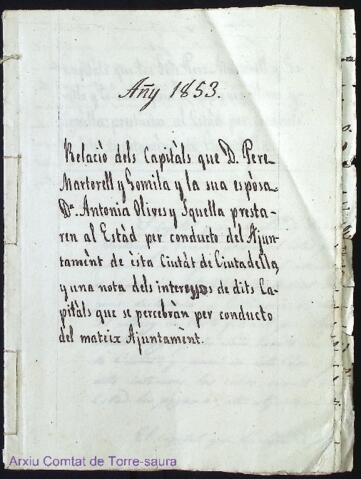 Añy 1853.
Relació dels Capitàls que D. Pere
Martorell y Gomila y la sua espòsa
Dª Antonia Olives y Squella presta-
ren al Estàd per conducto del Ajun-
tamènt de ésta Ciutàt de Ciutadella,
y una nota dels interessos de dits Ca-
pitàls que se percebràn per conducto
del mateix Ajuntamènt.
Arxiu Comtat de Torre-saura